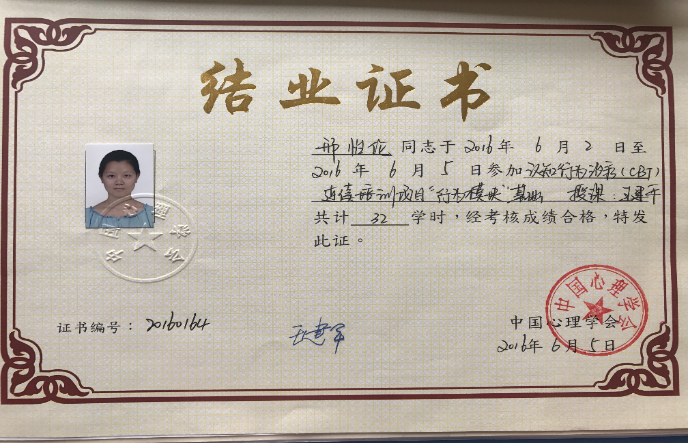 结业证书
邢怡伦 同志于 2016 年 6 月 2 日至
2016 年 6 月 5 日参加 认知行为治疗(CBT)
连续培训项目"行为模块"基础 授课:王建平
共计 32 学时，经考核成绩合格，特发
此证。
中国心理学会
证书编号：20160164
中国心理学会
中国心理学会
2016年 6 月 5 日